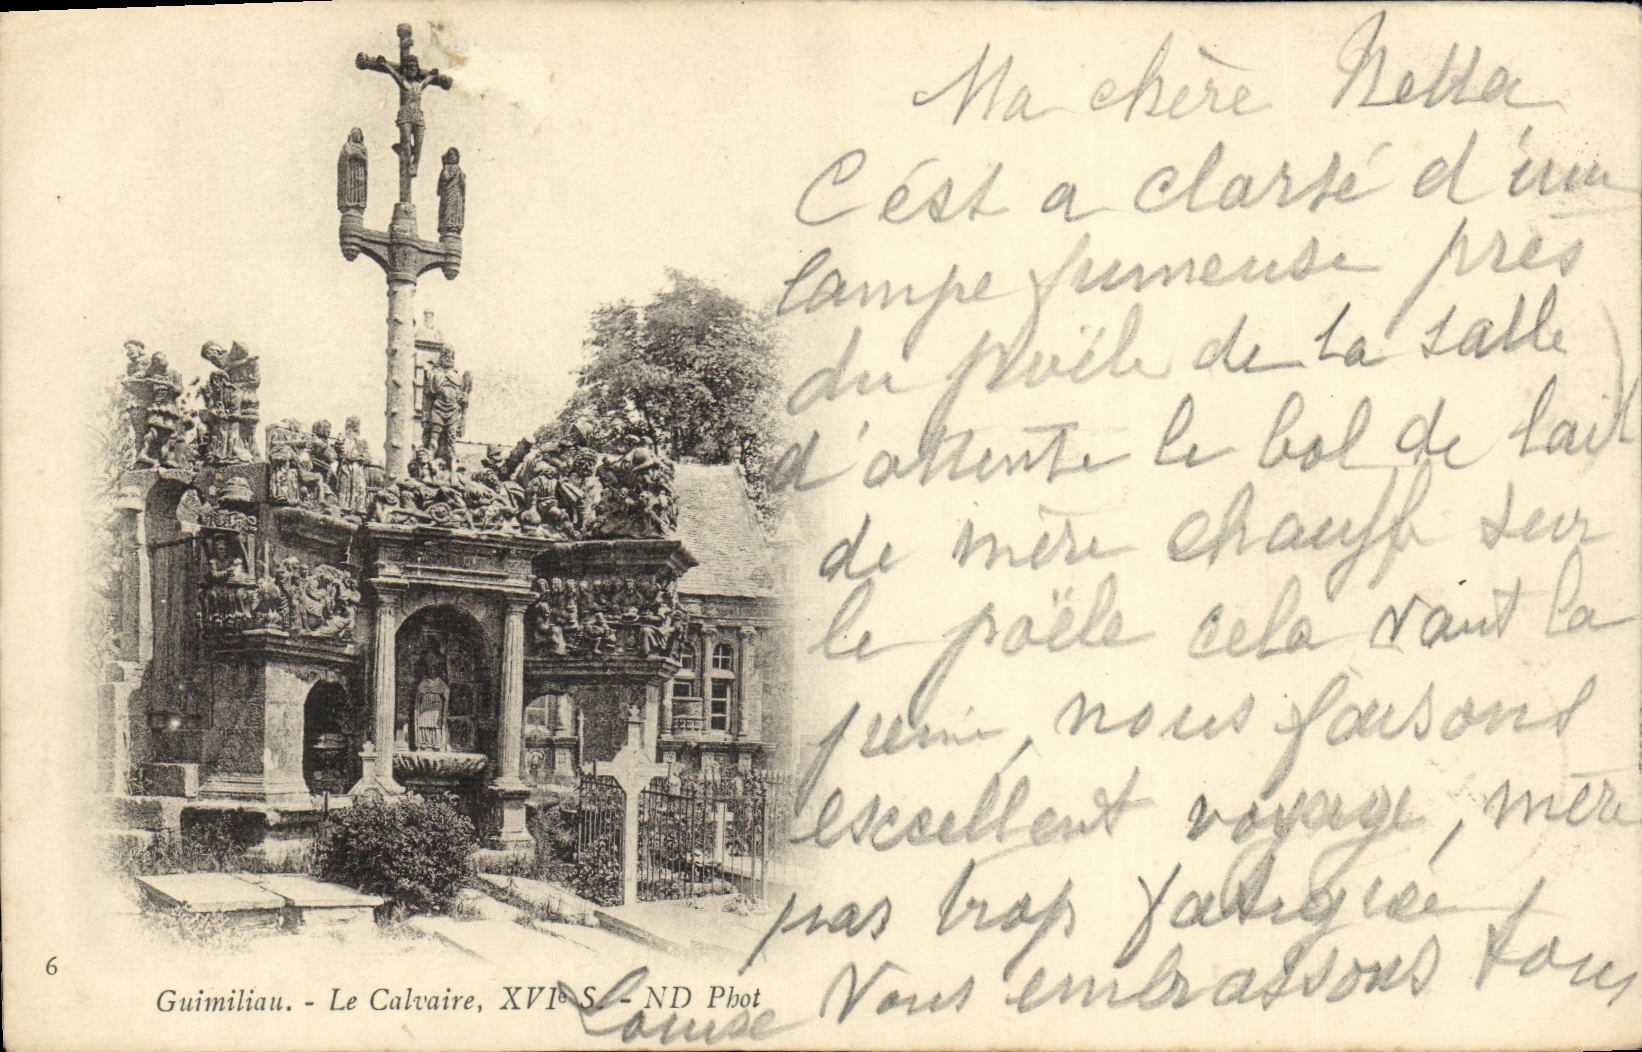 Ma chère Netta
C'ést a clarté d'une
lampe fumeuse près
du poële de la salle
d'attente le bol de lait
de mère chauffe sur
le poële cela vaut la
nous faisons
excellent voyage, mère
pas trop fatiguée
Vous embrassons tous
Louise
6
Guimiliau. - Le Calvaire, XVIe S. - ND Phot